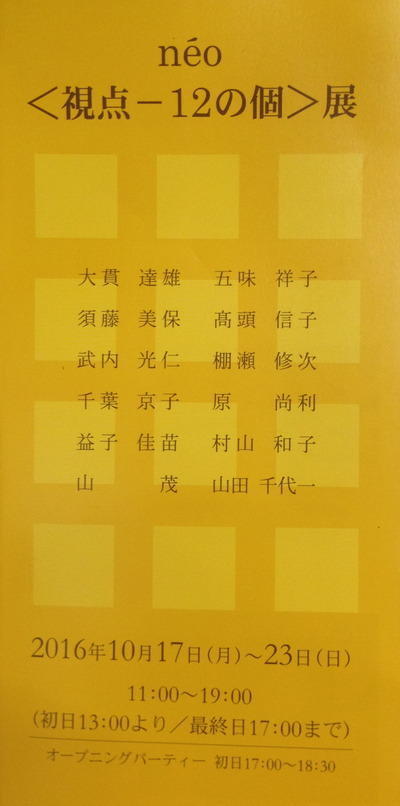 néo
＜視点－12の個＞展
大貫 達雄 五味 祥子
須藤 美保 髙頭 信子
武内 光仁 棚瀬 修次
千葉 京子 原 尚利
益子 佳苗 村山 和子
山 茂 山田 千代一
2016年10月17日(月)～23日(日)
11:00～19:00
(初日13:00より／最終日17:00まで)
オープニングパーティー 初日17:00～18:30